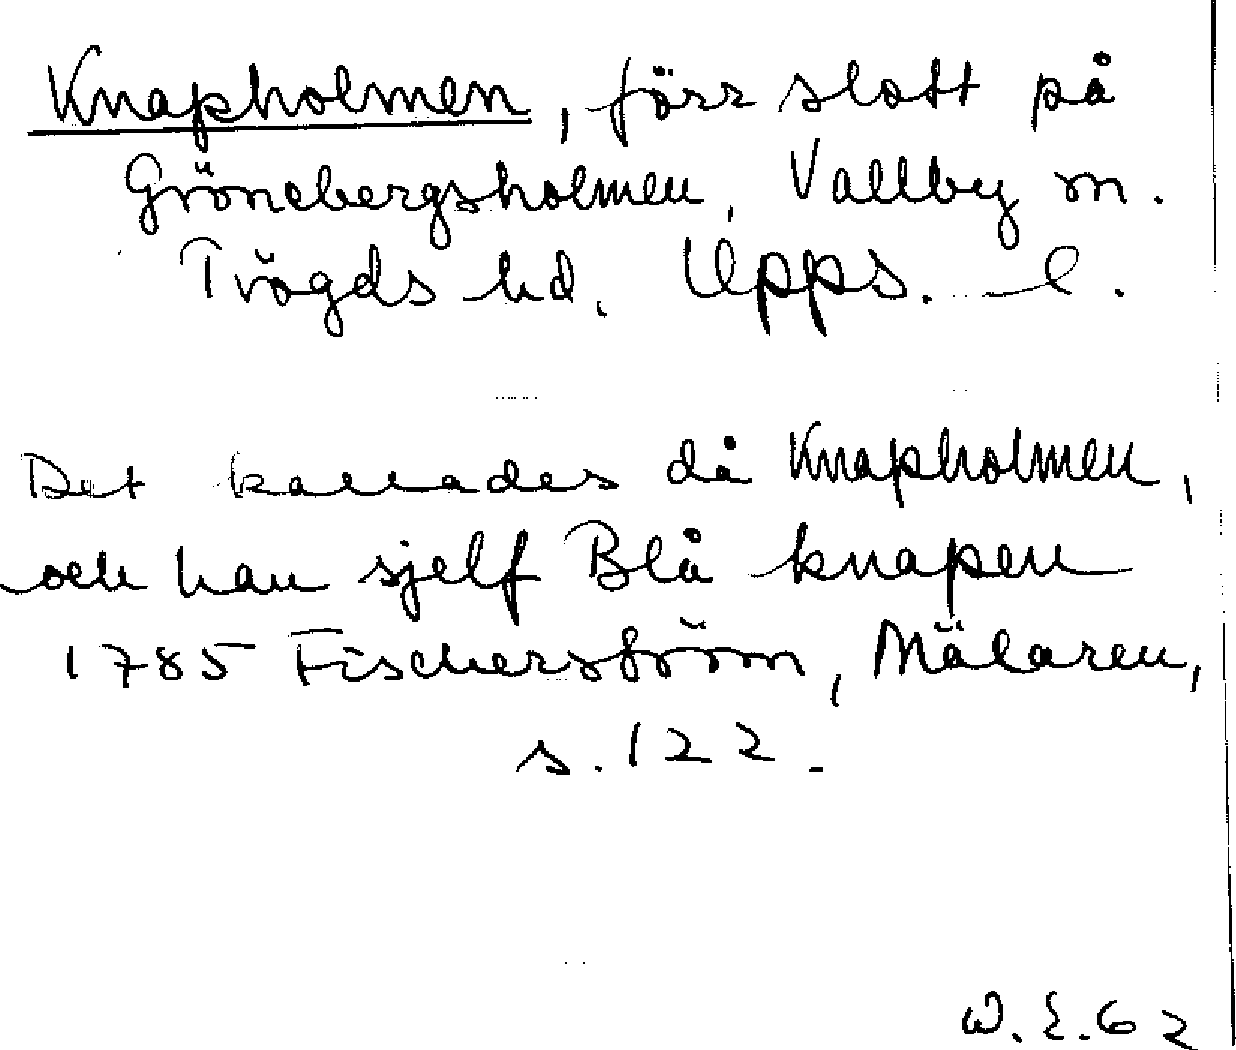 Knapholmen, förr slott på
Grönebergsholmen, Vallby sn.
Trögds hd. Upps. l.
Det kallades då Knapholmen,
och han sjelf Blå knapen
1785 Fischerström, Mälaren,
s. 122.
W. E. 62